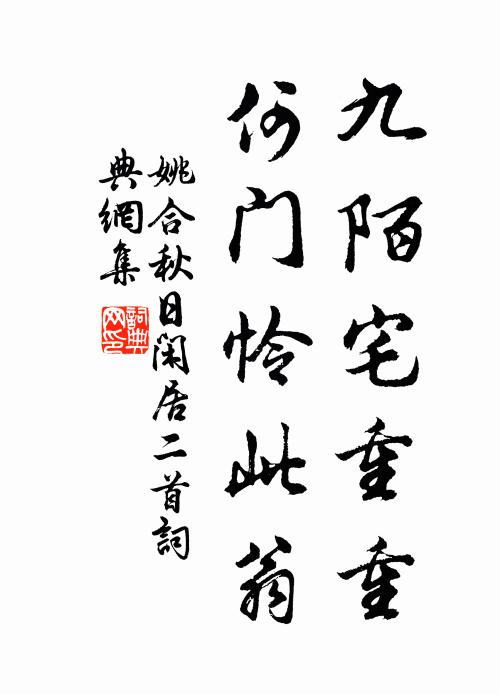 九陌宅重重
何门怜此翁
姚合秋日闲居二首詞
典網集
詞典网印